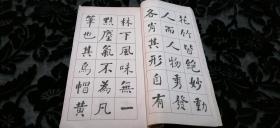 花竹皆絕妙動
人而人物秀發
各肖其形自有
林下風味無一
點塵氣不為凡
筆也其烏帽黃